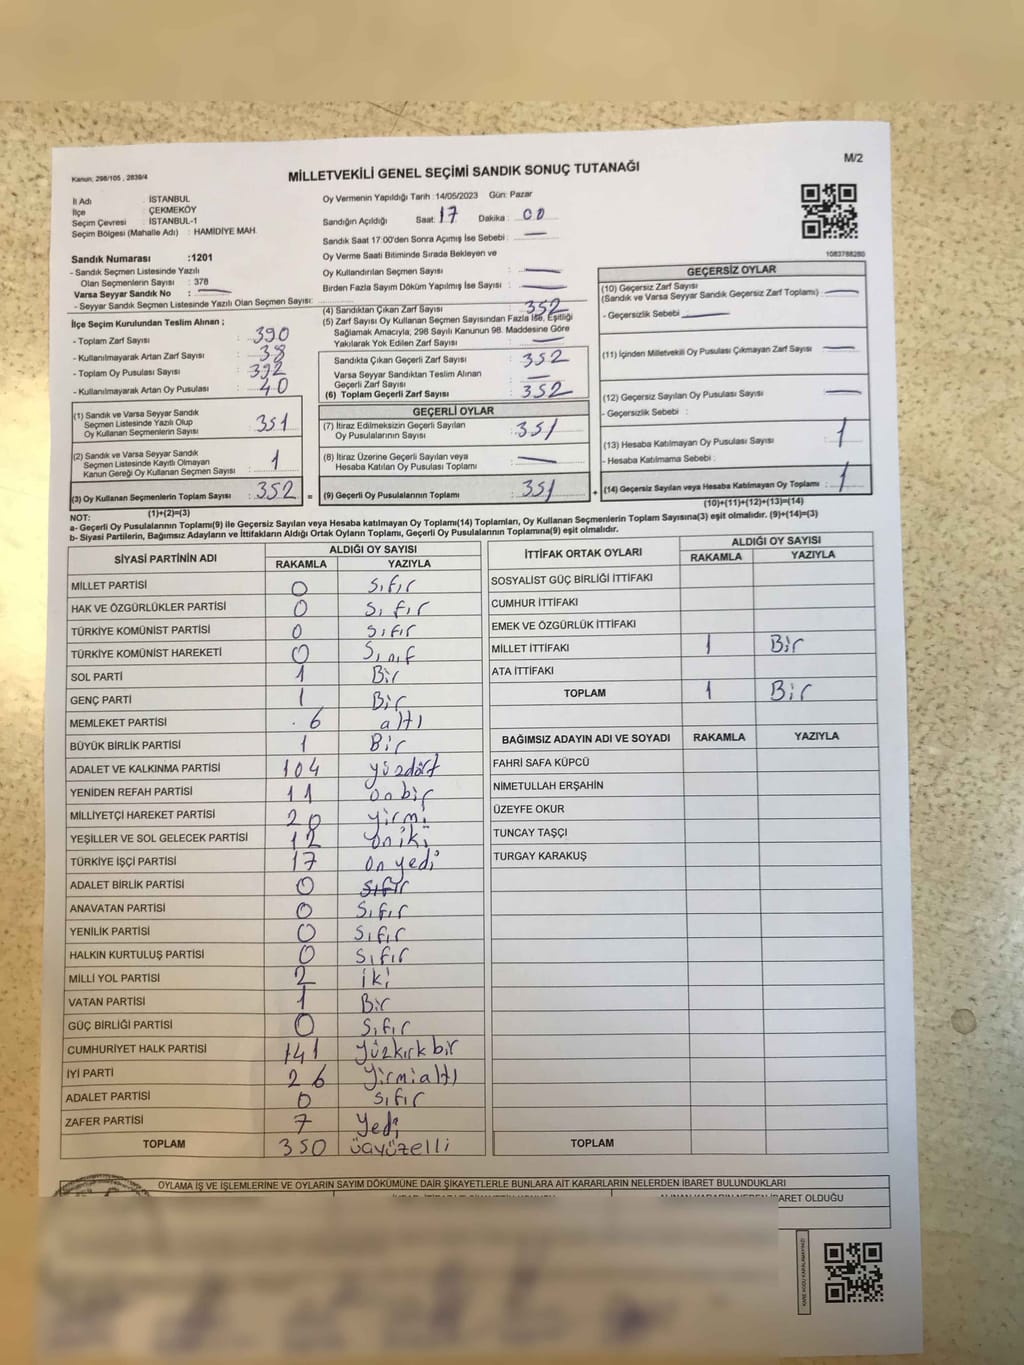 Kanun: 298/105 , 2839/4
MİLLETVEKİLİ GENEL SEÇİMİ SANDIK SONUÇ TUTANAĞI
M/2
İl Adı : İSTANBUL
İlçe : ÇEKMEKÖY
Seçim Çevresi : İSTANBUL-1
Seçim Bölgesi (Mahalle Adı) : HAMİDİYE MAH.
Sandık Numarası :1201
- Sandık Seçmen Listesinde Yazılı
Olan Seçmenlerin Sayısı : 378
Varsa Seyyar Sandık No :
- Seyyar Sandık Seçmen Listesinde Yazılı Olan Seçmen Sayısı:
Oy Vermenin Yapıldığı Tarih :14/05/2023 Gün: Pazar
Sandığın Açıldığı Saat: 17 Dakika : 00
Sandık Saat 17:00'den Sonra Açımış İse Sebebi :
Oy Verme Saati Bitiminde Sırada Bekleyen ve
Oy Kullandırılan Seçmen Sayısı :
Birden Fazla Sayım Döküm Yapılmış İse Sayısı :
1083788280
İlçe Seçim Kurulundan Teslim Alınan ;
- Toplam Zarf Sayısı : 390
- Kullanılmayarak Artan Zarf Sayısı : 38
- Toplam Oy Pusulası Sayısı : 392
- Kullanılmayarak Artan Oy Pusulası : 40
(1) Sandık ve Varsa Seyyar Sandık
Seçmen Listesinde Yazılı Olup
Oy Kullanan Seçmenlerin Sayısı : 351
(2) Sandık ve Varsa Seyyar Sandık
Seçmen Listesinde Kayıtlı Olmayan
Kanun Gereği Oy Kullanan Seçmen Sayısı : 1
(3) Oy Kullanan Seçmenlerin Toplam Sayısı : 352 =
(1)+(2)=(3)
(4) Sandıktan Çıkan Zarf Sayısı : 352
(5) Zarf Sayısı Oy Kullanan Seçmen Sayısından Fazla İse, Eşitliği
Sağlamak Amacıyla, 298 Sayılı Kanunun 98. Maddesine Göre
Yakılarak Yok Edilen Zarf Sayısı :
Sandıkta Çıkan Geçerli Zarf Sayısı : 352
Varsa Seyyar Sandıktan Teslim Alınan
Geçerli Zarf Sayısı :
(6) Toplam Geçerli Zarf Sayısı : 352
GEÇERLİ OYLAR
(7) İtiraz Edilmeksizin Geçerli Sayılan
Oy Pusulalarının Sayısı : 351
(8) İtiraz Üzerine Geçerli Sayılan veya
Hesaba Katılan Oy Pusulası Toplamı :
(9) Geçerli Oy Pusulalarının Toplamı : 351 +
GEÇERSİZ OYLAR
(10) Geçersiz Zarf Sayısı
(Sandık ve Varsa Seyyar Sandık Geçersiz Zarf Toplamı) :
- Geçersizlik Sebebi :
(11) İçinden Milletvekili Oy Pusulası Çıkmayan Zarf Sayısı :
(12) Geçersiz Sayılan Oy Pusulası Sayısı :
- Geçersizlik Sebebi :
(13) Hesaba Katılmayan Oy Pusulası Sayısı : 1
- Hesaba Katılmama Sebebi :
(14) Geçersiz Sayılan veya Hesaba Katılmayan Oy Toplamı : 1
(10)+(11)+(12)+(13)=(14)
NOT:
a- Geçerli Oy Pusulalarının Toplamı(9) ile Geçersiz Sayılan veya Hesaba katılmayan Oy Toplamı(14) Toplamları, Oy Kullanan Seçmenlerin Toplam Sayısına(3) eşit olmalıdır. (9)+(14)=(3)
b- Siyasi Partilerin, Bağımsız Adayların ve İttifakların Aldığı Ortak Oyların Toplamı, Geçerli Oy Pusulalarının Toplamına(9) eşit olmalıdır.
SİYASİ PARTİNİN ADI ALDIĞI OY SAYISI
RAKAMLA YAZIYLA
MİLLET PARTİSİ 0 Sıfır
HAK VE ÖZGÜRLÜKLER PARTİSİ 0 Sıfır
TÜRKİYE KOMÜNİST PARTİSİ 0 Sıfır
TÜRKİYE KOMÜNİST HAREKETİ 0 Sınıf
SOL PARTİ 1 Bir
GENÇ PARTİ 1 Bir
MEMLEKET PARTİSİ 6 altı
BÜYÜK BİRLİK PARTİSİ 1 Bir
ADALET VE KALKINMA PARTİSİ 104 yüzdört
YENİDEN REFAH PARTİSİ 11 onbir
MİLLİYETÇİ HAREKET PARTİSİ 20 yirmi
YEŞİLLER VE SOL GELECEK PARTİSİ 12 oniki
TÜRKİYE İŞÇİ PARTİSİ 17 onyedi
ADALET BİRLİK PARTİSİ 0 Sıfır
ANAVATAN PARTİSİ 0 Sıfır
YENİLİK PARTİSİ 0 Sıfır
HALKIN KURTULUŞ PARTİSİ 0 Sıfır
MİLLİ YOL PARTİSİ 2 iki
VATAN PARTİSİ 1 Bir
GÜÇ BİRLİĞİ PARTİSİ 0 Sıfır
CUMHURİYET HALK PARTİSİ 141 yüzkırkbir
İYİ PARTİ 26 yirmialtı
ADALET PARTİSİ 0 Sıfır
ZAFER PARTİSİ 7 Yedi
TOPLAM 350 üçyüzelli
İTTİFAK ORTAK OYLARI ALDIĞI OY SAYISI
RAKAMLA YAZIYLA
SOSYALİST GÜÇ BİRLİĞİ İTTİFAKI
CUMHUR İTTİFAKI
EMEK VE ÖZGÜRLÜK İTTİFAKI
MİLLET İTTİFAKI 1 Bir
ATA İTTİFAKI
TOPLAM 1 Bir
BAĞIMSIZ ADAYIN ADI VE SOYADI RAKAMLA YAZIYLA
FAHRİ SAFA KÜPCÜ
NİMETULLAH ERŞAHİN
ÜZEYFE OKUR
TUNCAY TAŞÇI
TURGAY KARAKUŞ
TOPLAM
OYLAMA İŞ VE İŞLEMLERİNE VE OYLARIN SAYIM DÖKÜMÜNE DAİR ŞİKAYETLERLE BUNLARA AİT KARARLARIN NELERDEN İBARET BULUNDUKLARI
ALINAN KARARIN NEDEN İBARET OLDUĞU